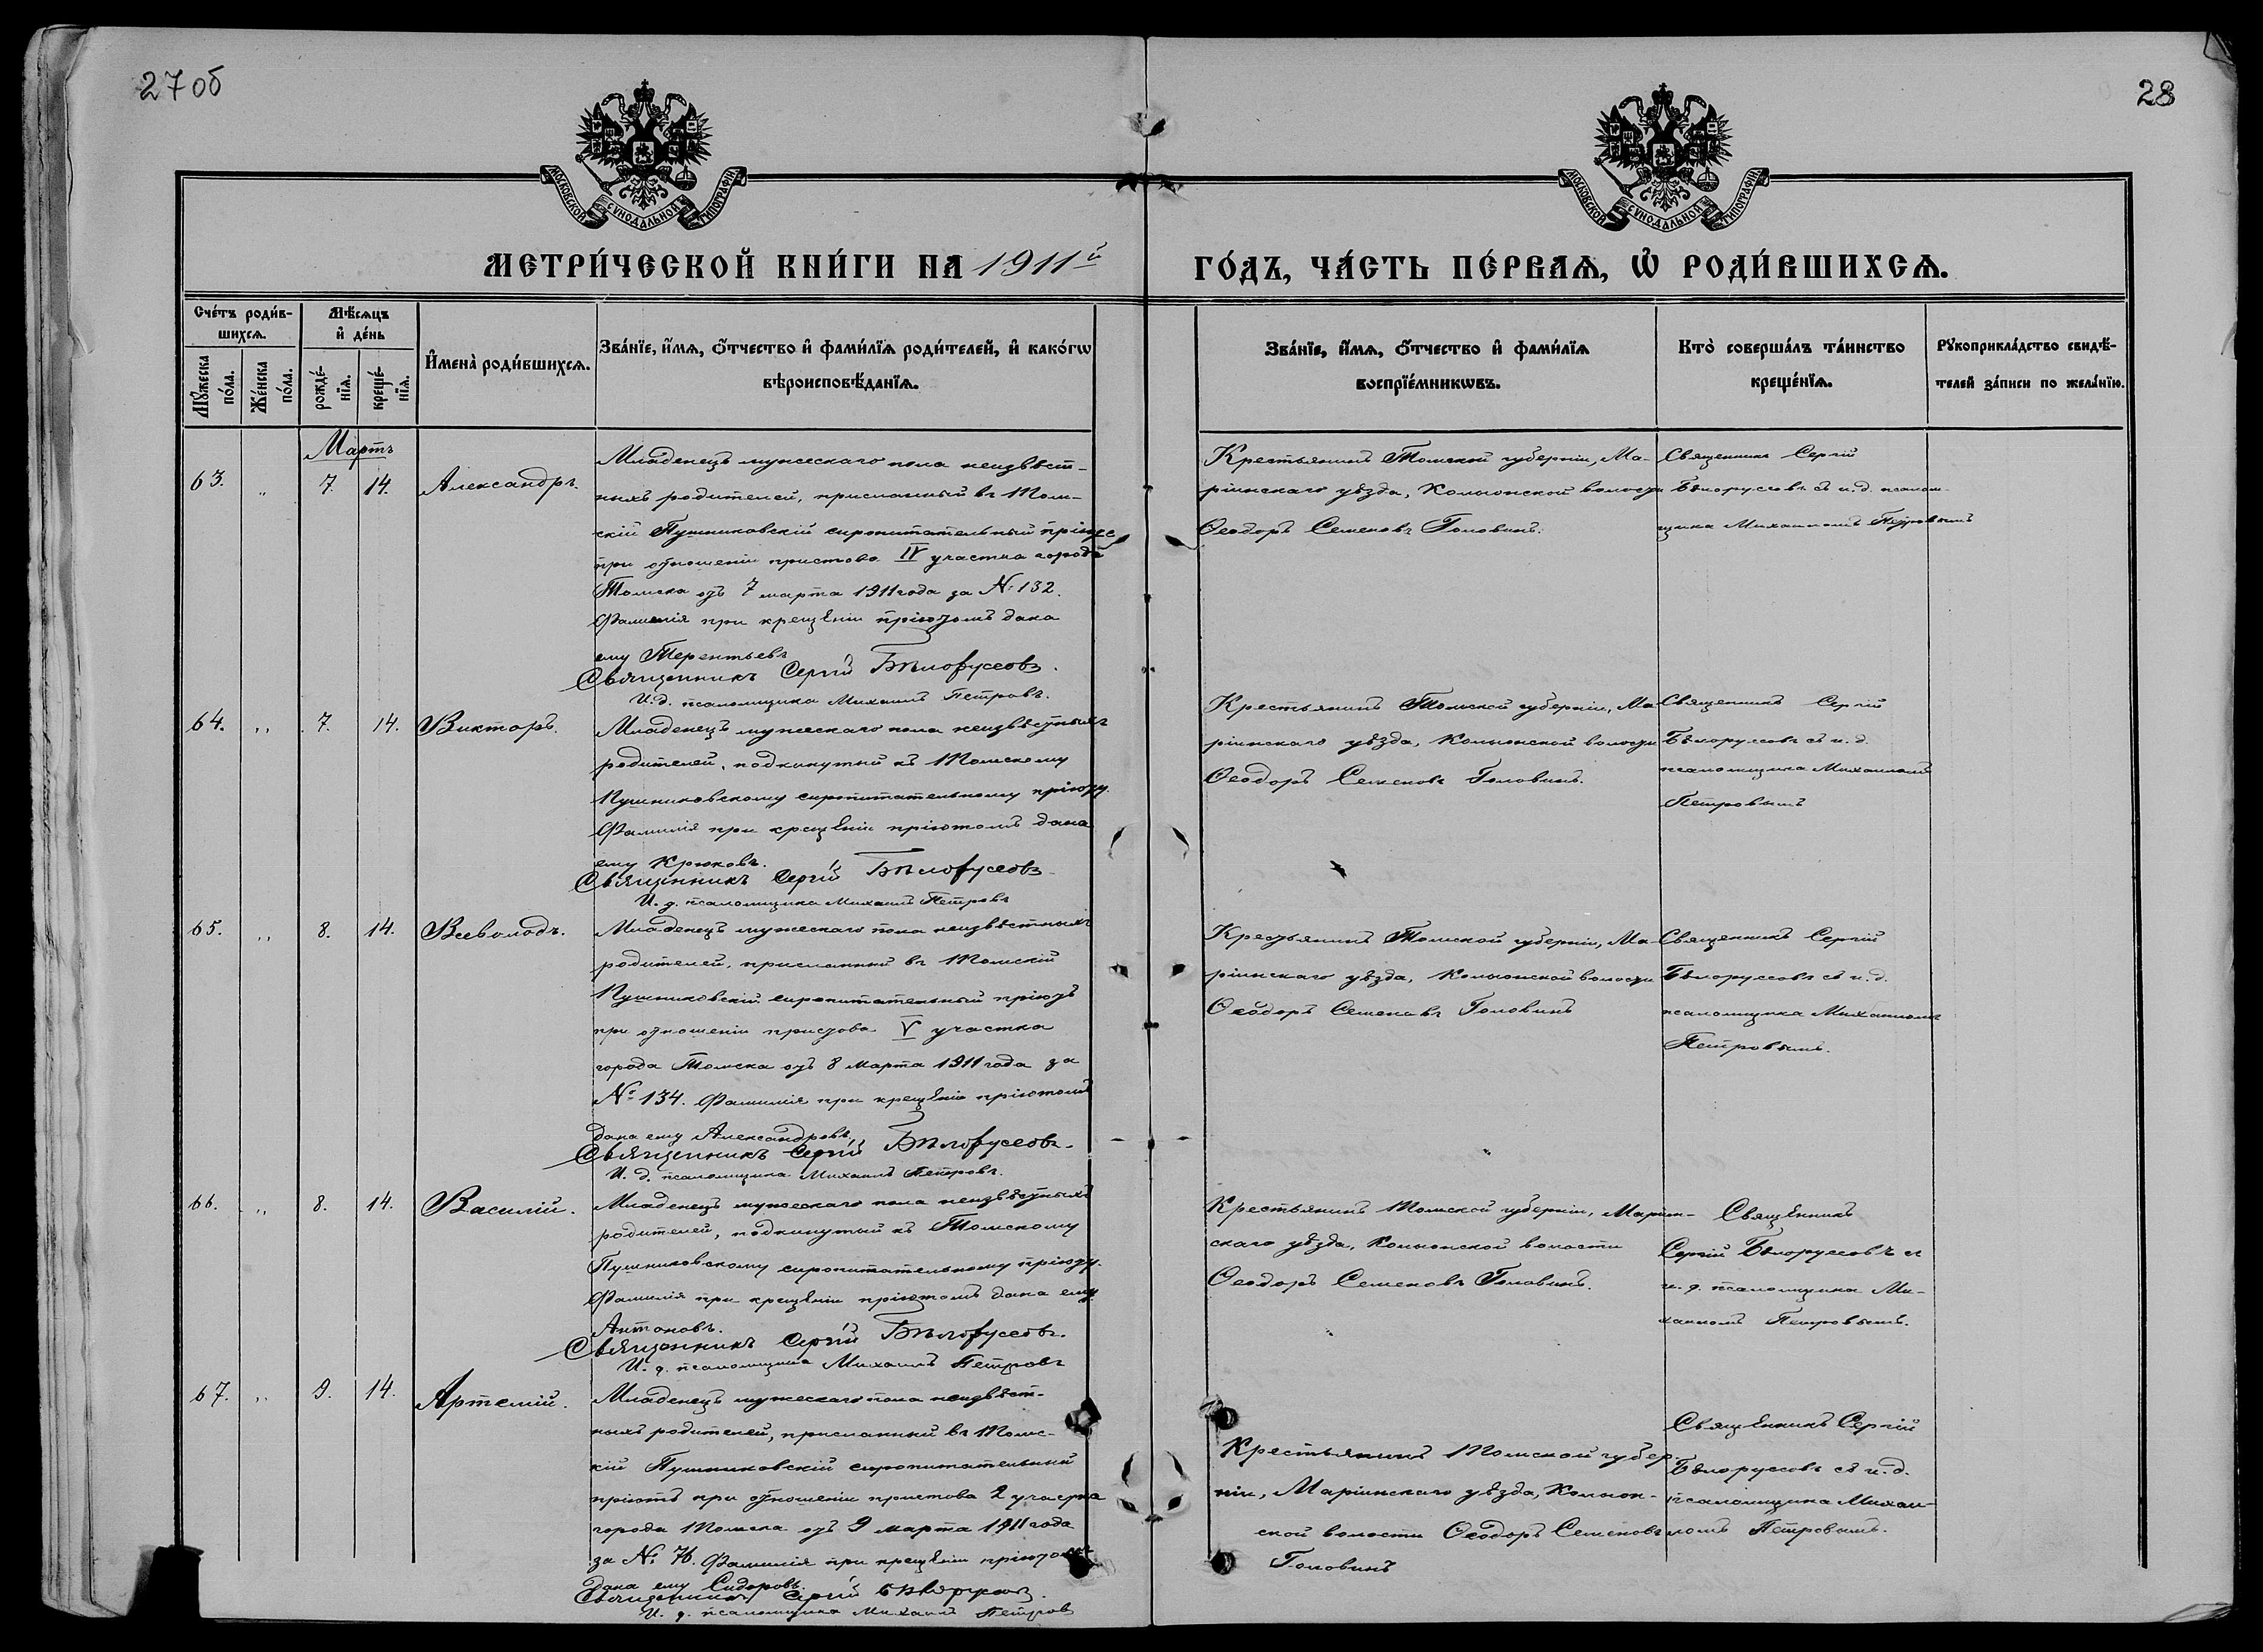 27об
28
МОСКОВСКОЙ СѴНОДАЛЬНОЙ ТИПОГРАФІИ
МОСКОВСКОЙ СѴНОДАЛЬНОЙ ТИПОГРАФІИ
МЕТРИ́ЧЕСКОЙ КНИ́ГИ НА 1911й
ГО́ДЪ, ЧА́СТЬ ПЕ́РВАѦ, Ѡ҆ РОДИ́ВШИХСѦ.
Сче́тъ роди́в-
шихсѧ.
Мꙋ́жеска
по́ла.
Же́нска
по́ла.
Мѣ́сѧцъ
и҆ де́нь
рожде́-
нїѧ.
креще́-
нїѧ.
И҆мена̀ роди́вшихсѧ.
Зва́нїе, и҆́мѧ, ѻ҆́тчество и҆ фами́лїѧ роди́телей, и҆ како́гѡ
вѣроисповѣ́данїѧ.
Зва́нїе, и҆́мѧ, ѻ҆́тчество и҆ фами́лїѧ
воспрїе́мникѡвъ.
Кто̀ соверша́лъ та́инство
креще́нїѧ.
Рꙋкоприкла́дство свидѣ́-
телей за́писи по жела́нїю.
Мартъ
63. „ 7. 14. Александръ.
Младенецъ мужескаго пола неизвѣст-
ныхъ родителей, присланный въ Том-
скій Пушниковскій сиропитательный пріютъ
при отношеніи пристава IV участка города
Томска отъ 7 марта 1911 года за № 132.
Фамилія при крещеніи пріютомъ дана
ему Терентьевъ
Священникъ Сергій Бѣлоруссовъ.
И.д. псаломщика Михаилъ Петровъ.
Крестьянинъ Томской губерніи, Ма-
ріинскаго уѣзда, Колыонской волости
Ѳеодоръ Семеновъ Головинъ.
Священникъ Сергій
Бѣлоруссовъ съ и.д. псалом-
щика Михаиломъ Петровымъ
64. „ 7. 14. Викторъ.
Младенецъ мужескаго пола неизвѣстныхъ
родителей, подкинутый къ Томскому
Пушниковскому сиропитательному пріюту.
Фамилія при крещеніи пріютомъ дана
ему Крюковъ.
Священникъ Сергій Бѣлоруссовъ
И. д. псаломщика Михаилъ Петровъ
Крестьянинъ Томской губерніи, Ма-
ріинскаго уѣзда, Колыонской волости
Ѳеодоръ Семеновъ Головинъ.
Священникъ Сергій
Бѣлоруссовъ съ и.д.
псаломщика Михаиломъ
Петровымъ
65. „ 8. 14. Всеволодъ.
Младенецъ мужескаго пола неизвѣстныхъ
родителей, присланный въ Томскій
Пушниковскій сиропитательный пріютъ
при отношеніи пристава V участка
города Томска отъ 8 марта 1911 года за
№ 134. Фамилія при крещеніи пріютомъ
дана ему Александровъ.
Священникъ Сергій Бѣлоруссовъ.
И. д. псаломщика Михаилъ Петровъ.
Крестьянинъ Томской губерніи, Ма-
ріинскаго уѣзда, Колыонской волости
Ѳеодоръ Семеновъ Головинъ
Священникъ Сергій
Бѣлоруссовъ съ и.д.
псаломщика Михаиломъ
Петровымъ.
66. „ 8. 14. Василій.
Младенецъ мужескаго пола неизвѣстныхъ
родителей, подкинутый къ Томскому
Пушниковскому сиропитательному пріюту.
Фамилія при крещеніи пріютомъ дана ему
Антоновъ.
Священникъ Сергій Бѣлоруссовъ.
И. д. псаломщика Михаилъ Петровъ
Крестьянинъ Томской губерніи, Маріин-
скаго уѣзда, Колыонской волости
Ѳеодоръ Семеновъ Головинъ.
Священникъ
Сергій Бѣлоруссовъ съ
и. д. псаломщика Ми-
хаиломъ Петровымъ.
67. „ 9. 14. Артемій.
Младенецъ мужескаго пола неизвѣст-
ныхъ родителей, присланный въ Томс-
кій Пушниковскій сиропитательный
пріютъ при отношеніи пристава 2 участка
города Томска отъ 9 марта 1911 года
за № 76. Фамилія при крещеніи пріютомъ
дана ему Сидоровъ.
Священникъ Сергій Бѣлоруссовъ.
И. д. псаломщика Михаилъ Петровъ
Крестьянинъ Томской губер-
ніи, Маріинскаго уѣзда, Колыон-
ской волости Ѳеодоръ Семеновъ
Головинъ
Священникъ Сергій
Бѣлоруссовъ съ и.д.
псаломщика Михаи-
ломъ Петровымъ.